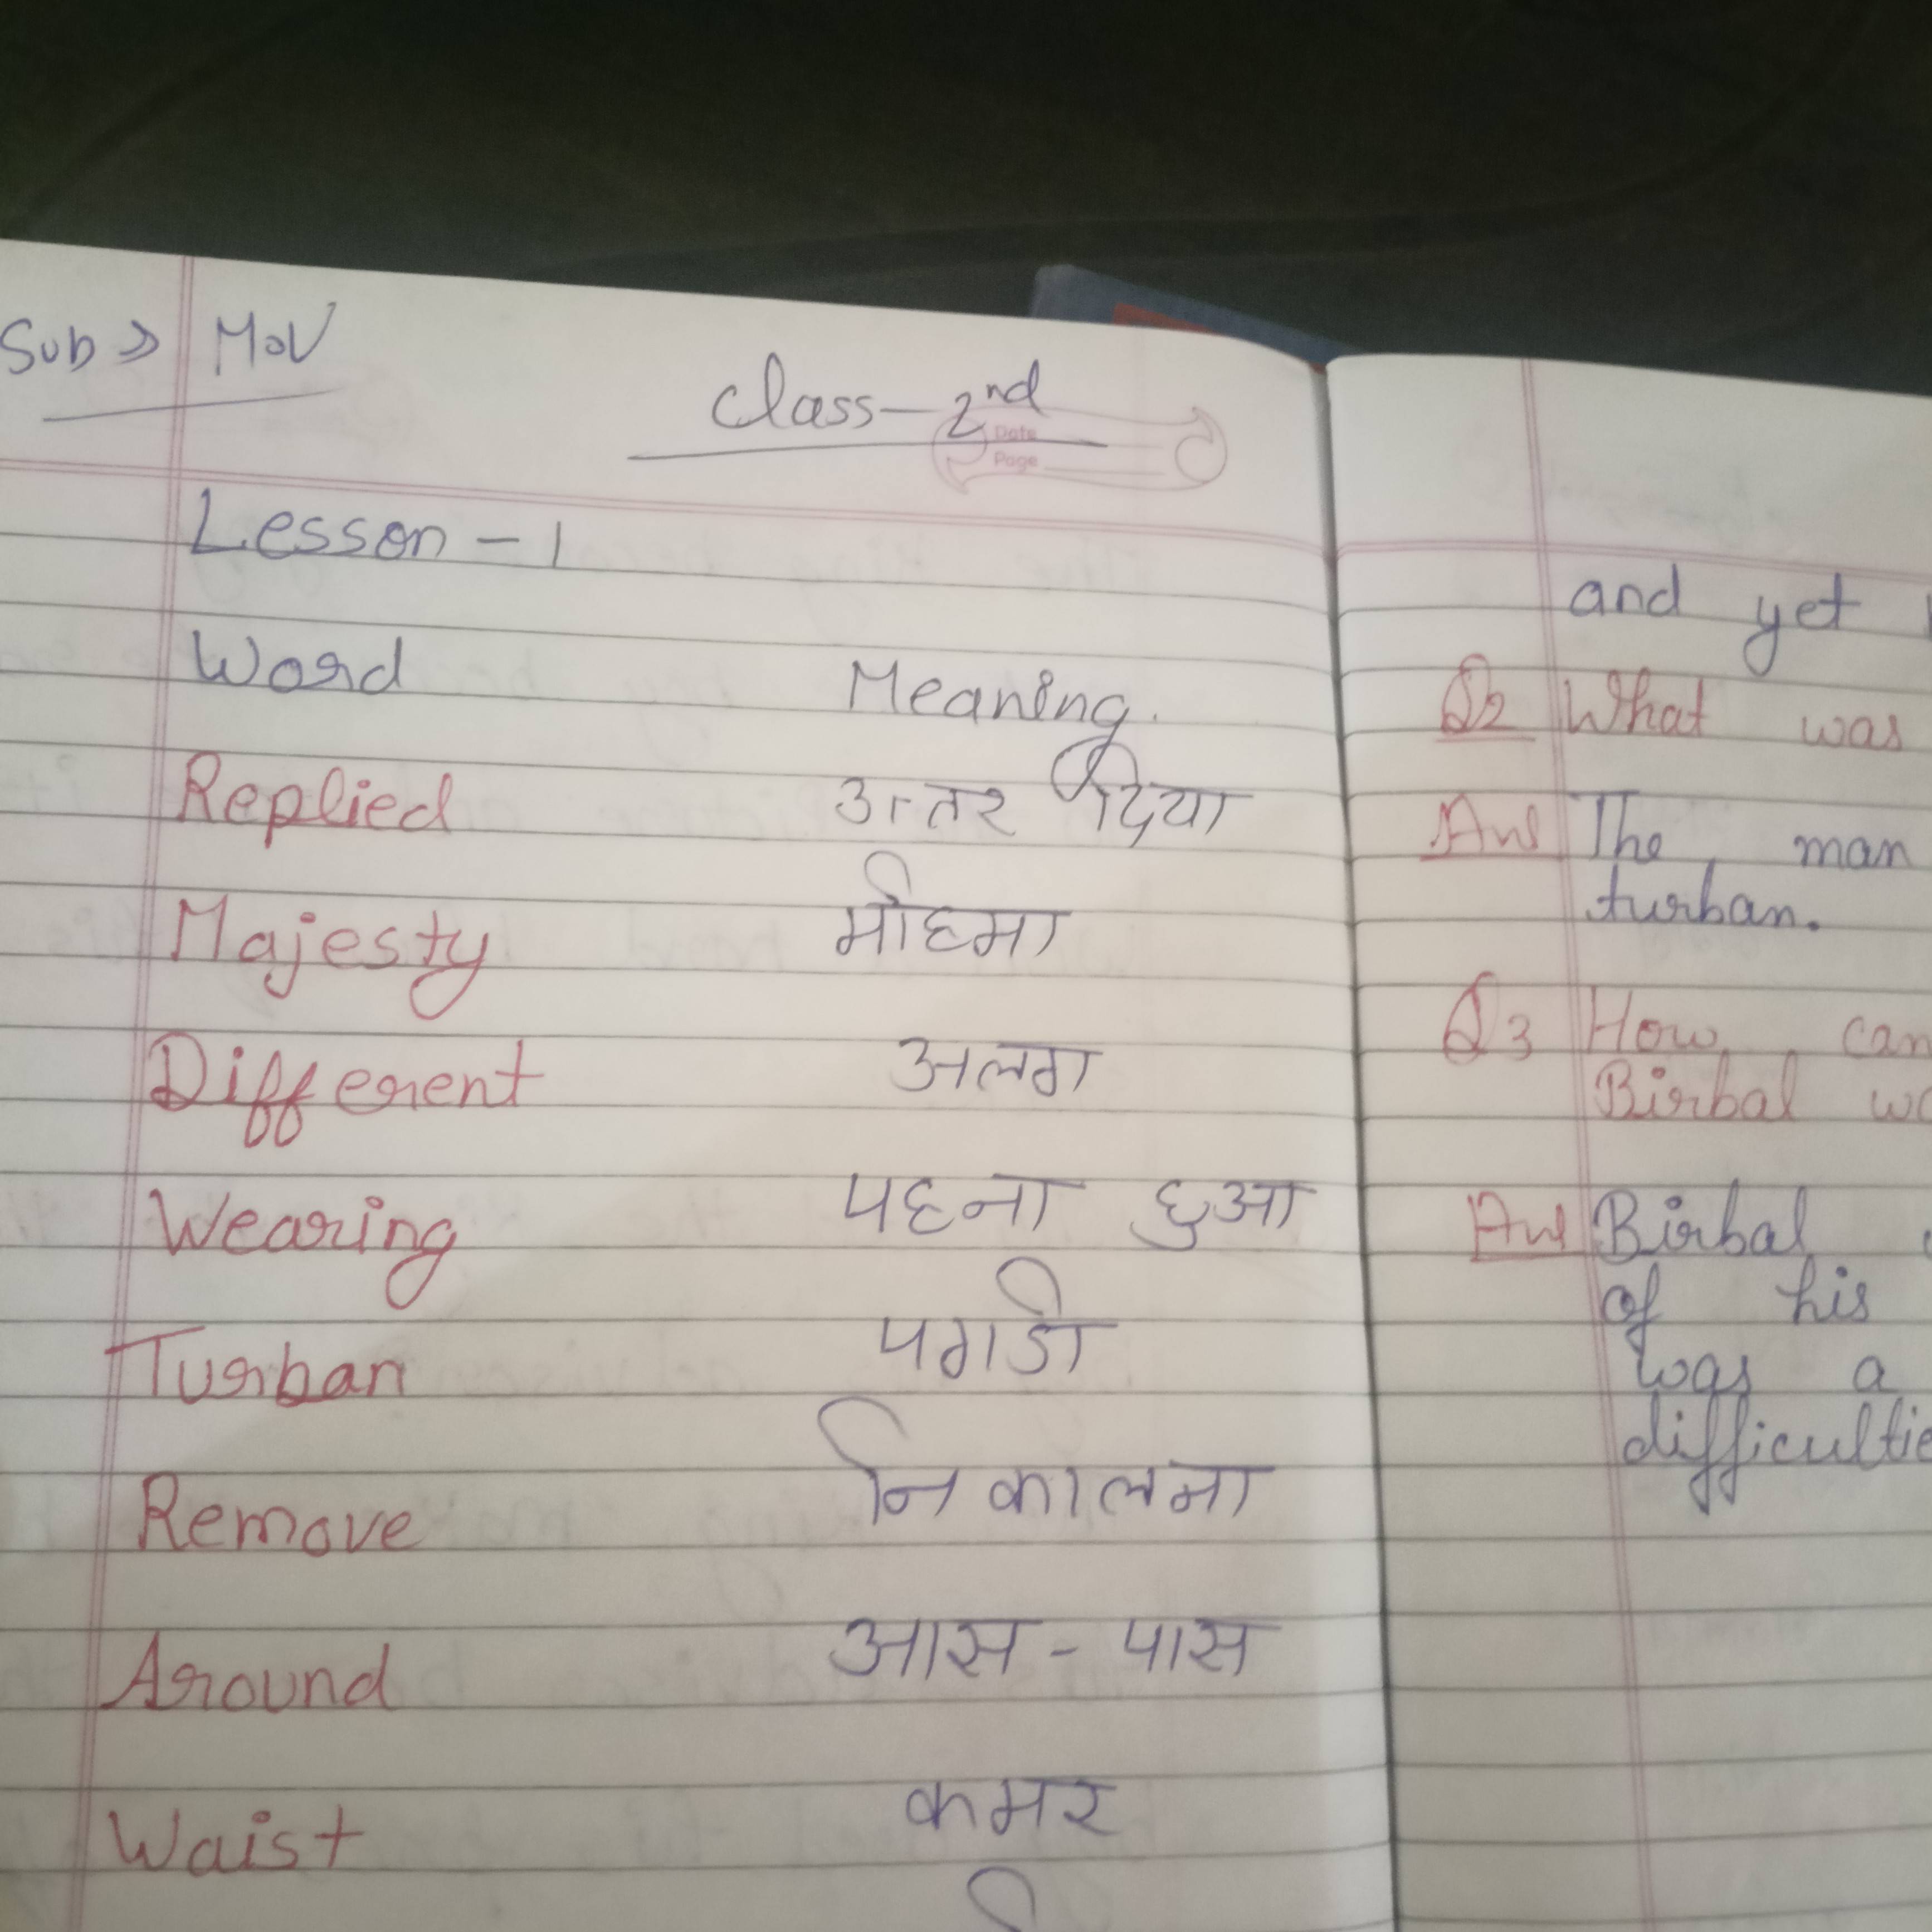 Sub > Mov
Class - 2nd
Date
Page
Lesson - 1
Word Meaning.
Replied उत्तर दिया
Majesty महिमा
Different अलग
Wearing पहना हुआ
Turban पगडी
Remove निकालना
Around आस - पास
Waist कमर
and yet
Q2 What was
Ans The man
turban.
Q3 How can
Birbal
Ans Birbal
of his
was a